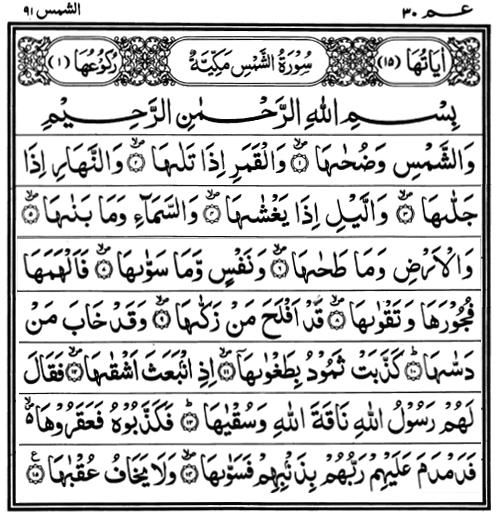 عم ٣٠ الشمس ٩١
اٰيَاتُهَا (١٥) سُوْرَةُ الشَّمْسِ مَكِّيَّةٌ رُكُوْعُهَا (١)
بِسْمِ اللهِ الرَّحْمٰنِ الرَّحِيْمِ
وَالشَّمْسِ وَضُحٰىهَا ۙ﴿١﴾ وَالْقَمَرِ اِذَا تَلٰىهَا ۙ﴿٢﴾ وَالنَّهَارِ اِذَا
جَلّٰىهَا ۙ﴿٣﴾ وَالَّيْلِ اِذَا يَغْشٰىهَا ۙ﴿٤﴾ وَالسَّمَآءِ وَمَا بَنٰىهَا ۙ﴿٥﴾
وَالْاَرْضِ وَمَا طَحٰىهَا ۙ﴿٦﴾ وَنَفْسٍ وَّمَا سَوّٰىهَا ۙ﴿٧﴾ فَاَلْهَمَهَا
فُجُوْرَهَا وَتَقْوٰىهَا ۙ﴿٨﴾ قَدْ اَفْلَحَ مَنْ زَكّٰىهَا ۙ﴿٩﴾ وَقَدْ خَابَ مَنْ
دَسّٰىهَا ؕ﴿١٠﴾ كَذَّبَتْ ثَمُوْدُ بِطَغْوٰىهَاۤ ۙ﴿١١﴾ اِذِ انْۢبَعَثَ اَشْقٰىهَا ۙ﴿١٢﴾ فَقَالَ
لَهُمْ رَسُوْلُ اللهِ نَاقَةَ اللهِ وَسُقْيٰهَا ؕ﴿١٣﴾ فَكَذَّبُوْهُ فَعَقَرُوْهَا ۙ
فَدَمْدَمَ عَلَيْهِمْ رَبُّهُمْ بِذَنْۢبِهِمْ فَسَوّٰىهَا ۙ﴿١٤﴾ وَلَا يَخَافُ عُقْبٰهَا ﴿١٥﴾ ع